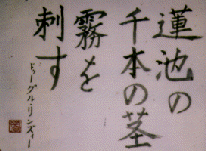 蓮池の
千本の茎
霧を
刺す
ドゥーグル・リンズィー